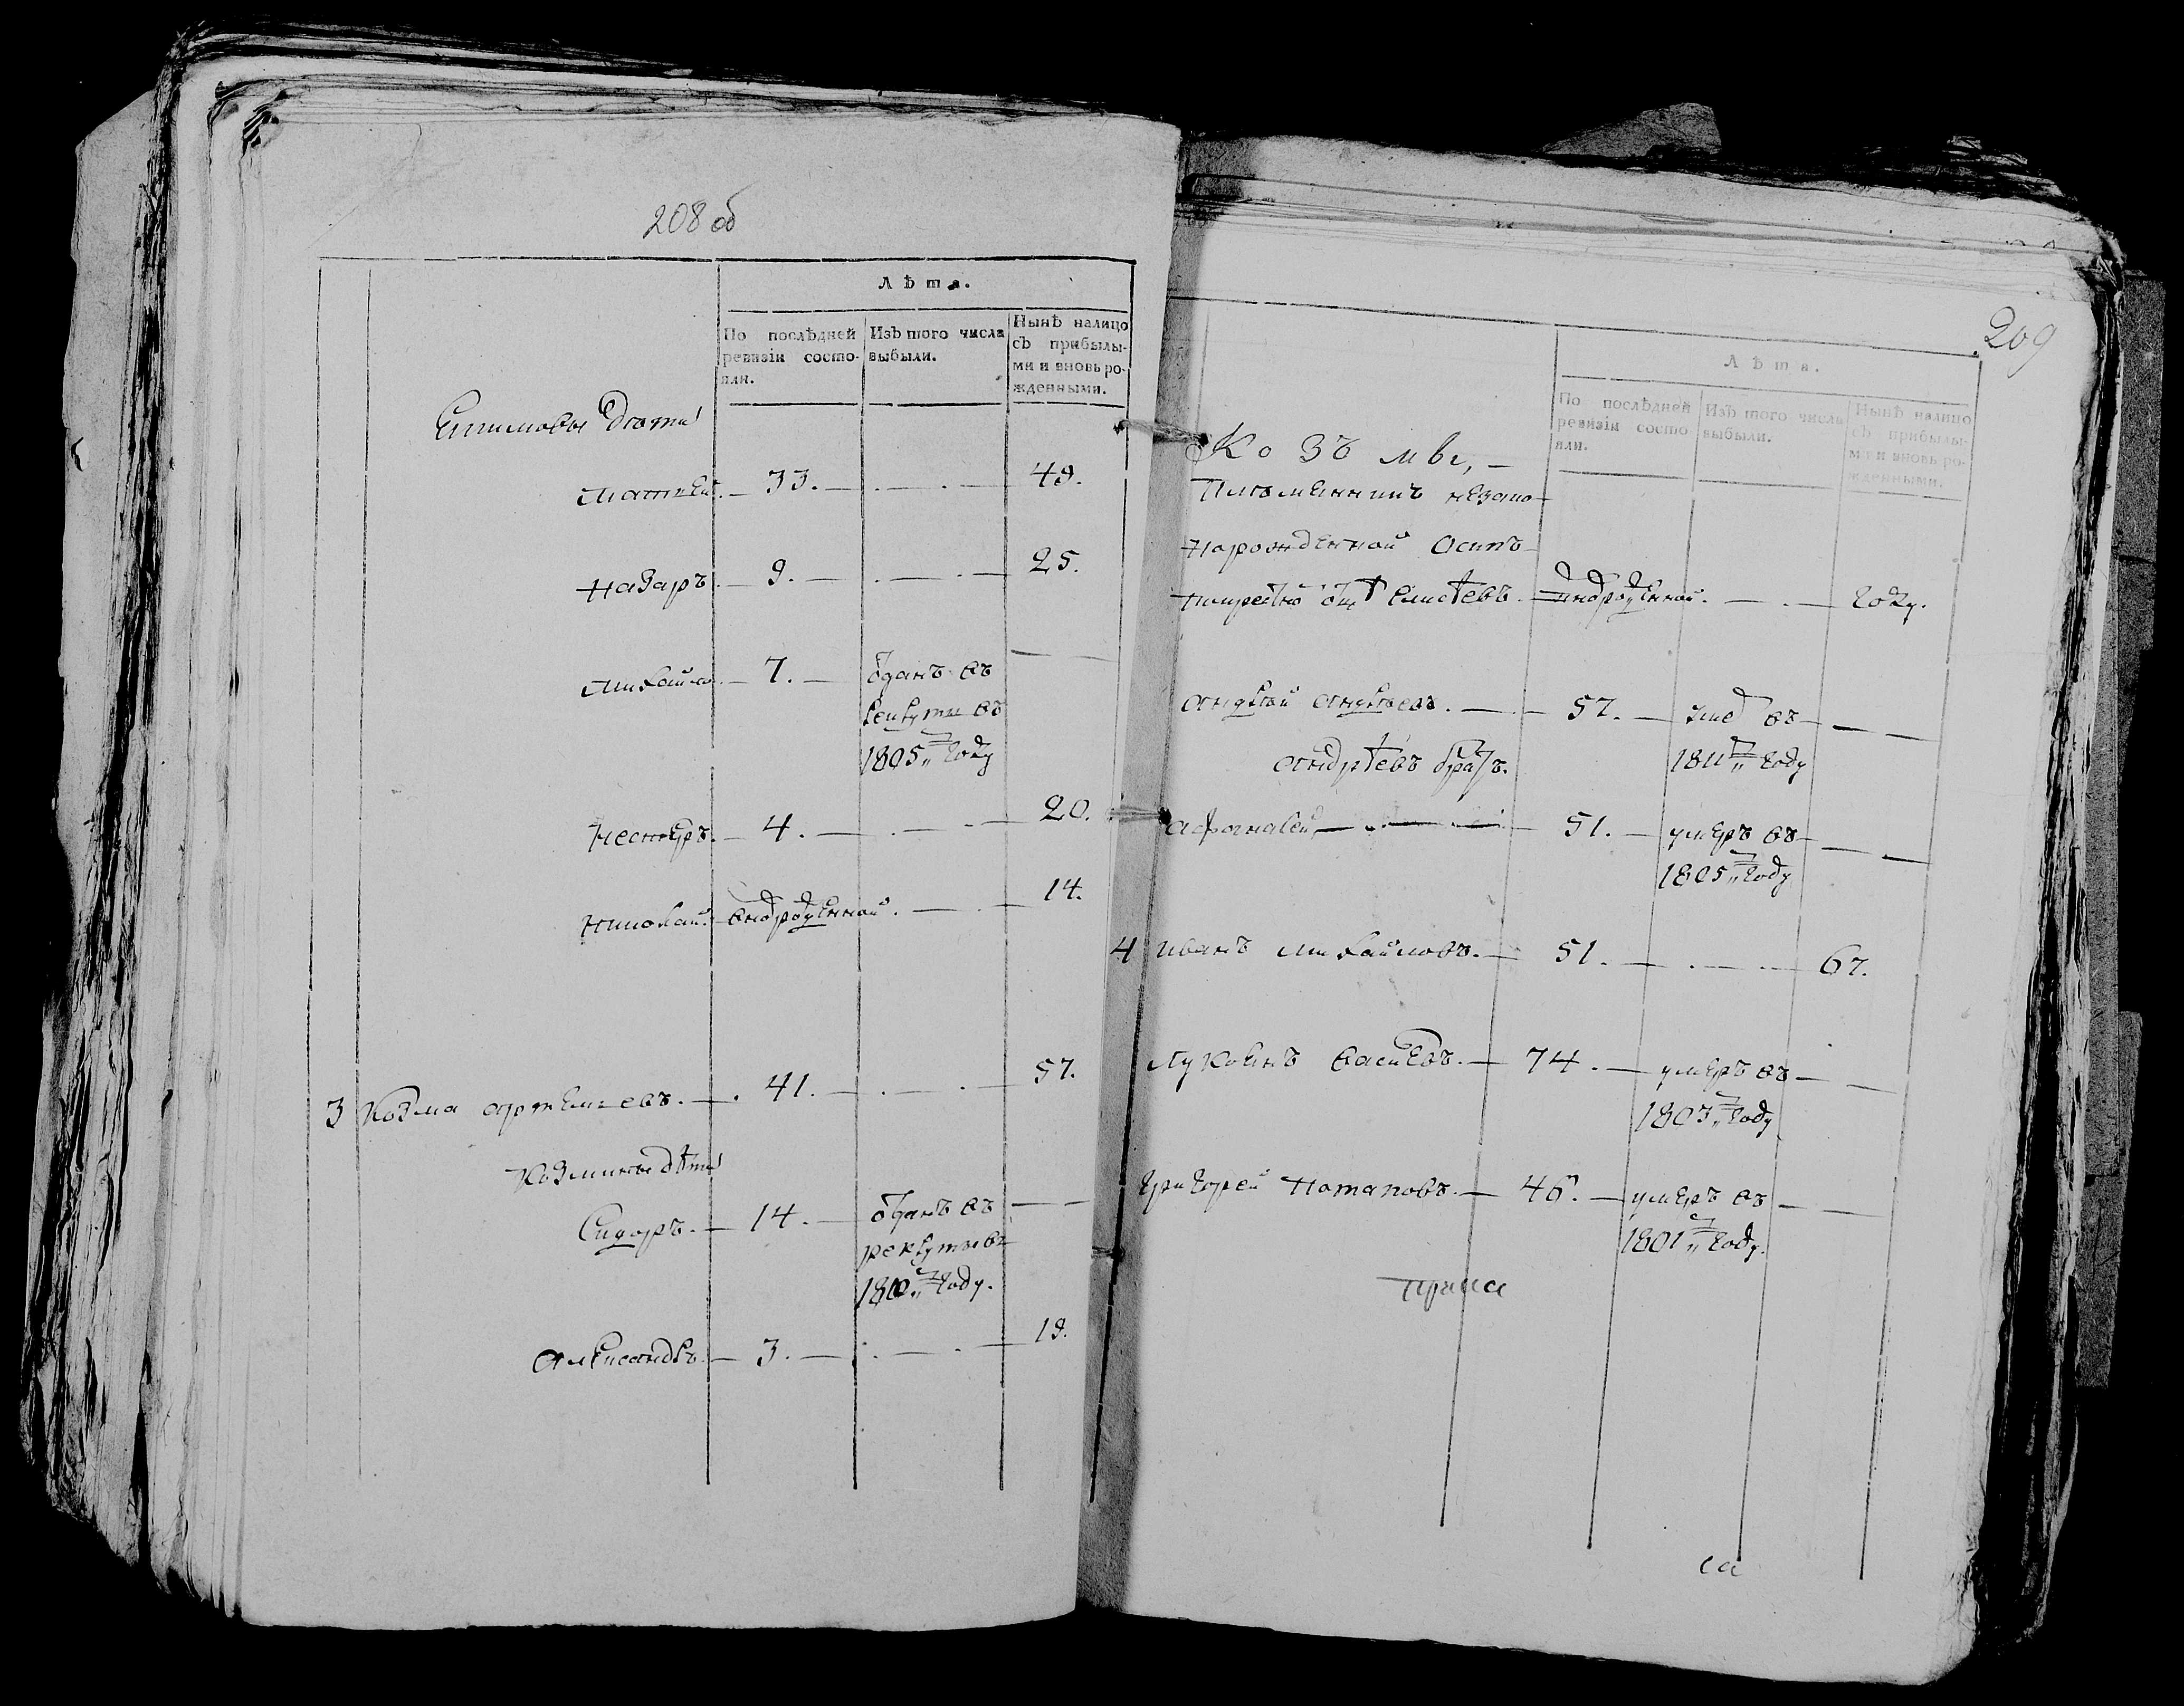 208 об
Лѣта.
По послѣдней ревизіи состояли.
Изъ того числа выбыли.
Нынѣ налицо съ прибылыми и вновь рожденными.
дѣти
Матвей. — 33. — . — . — 49.
Назаръ. — 9. — . — . — 25.
Михайла. — 7. — отданъ въ —
рекруты въ
1805,, году
Нестеръ. — 4. — . — . — 20.
Николай. — вновьрожденной. — . — 14.
3 Козма Артемьевъ. — 41. — . — . — 57.
Козмины дѣти
Сидоръ. — 14. — отданъ въ — —
рекруты въ
1810,, году.
Александръ. — 3. — . — . — 19.
209
Лѣта.
По послѣдней ревизіи состояли.
Изъ того числа выбыли.
Нынѣ налицо съ прибылыми и вновь рожденными.
Козьмы, —
Племянникъ незако-
норожденной Осипъ
Елисѣевъ. — вновьрожденной. — . — году.
— 57. — въ — —
1811,, году
Андрѣевъ братъ.
Афонасей — . — 51. — умеръ въ — —
1805,, году
4 Иванъ Михайловъ. — 51. — . — . — 67.
Лукоянъ Васильевъ. — 74. — умеръ въ — —
1803,, году
Григорей Потаповъ. — 46. — умеръ въ — —
1801,, году.